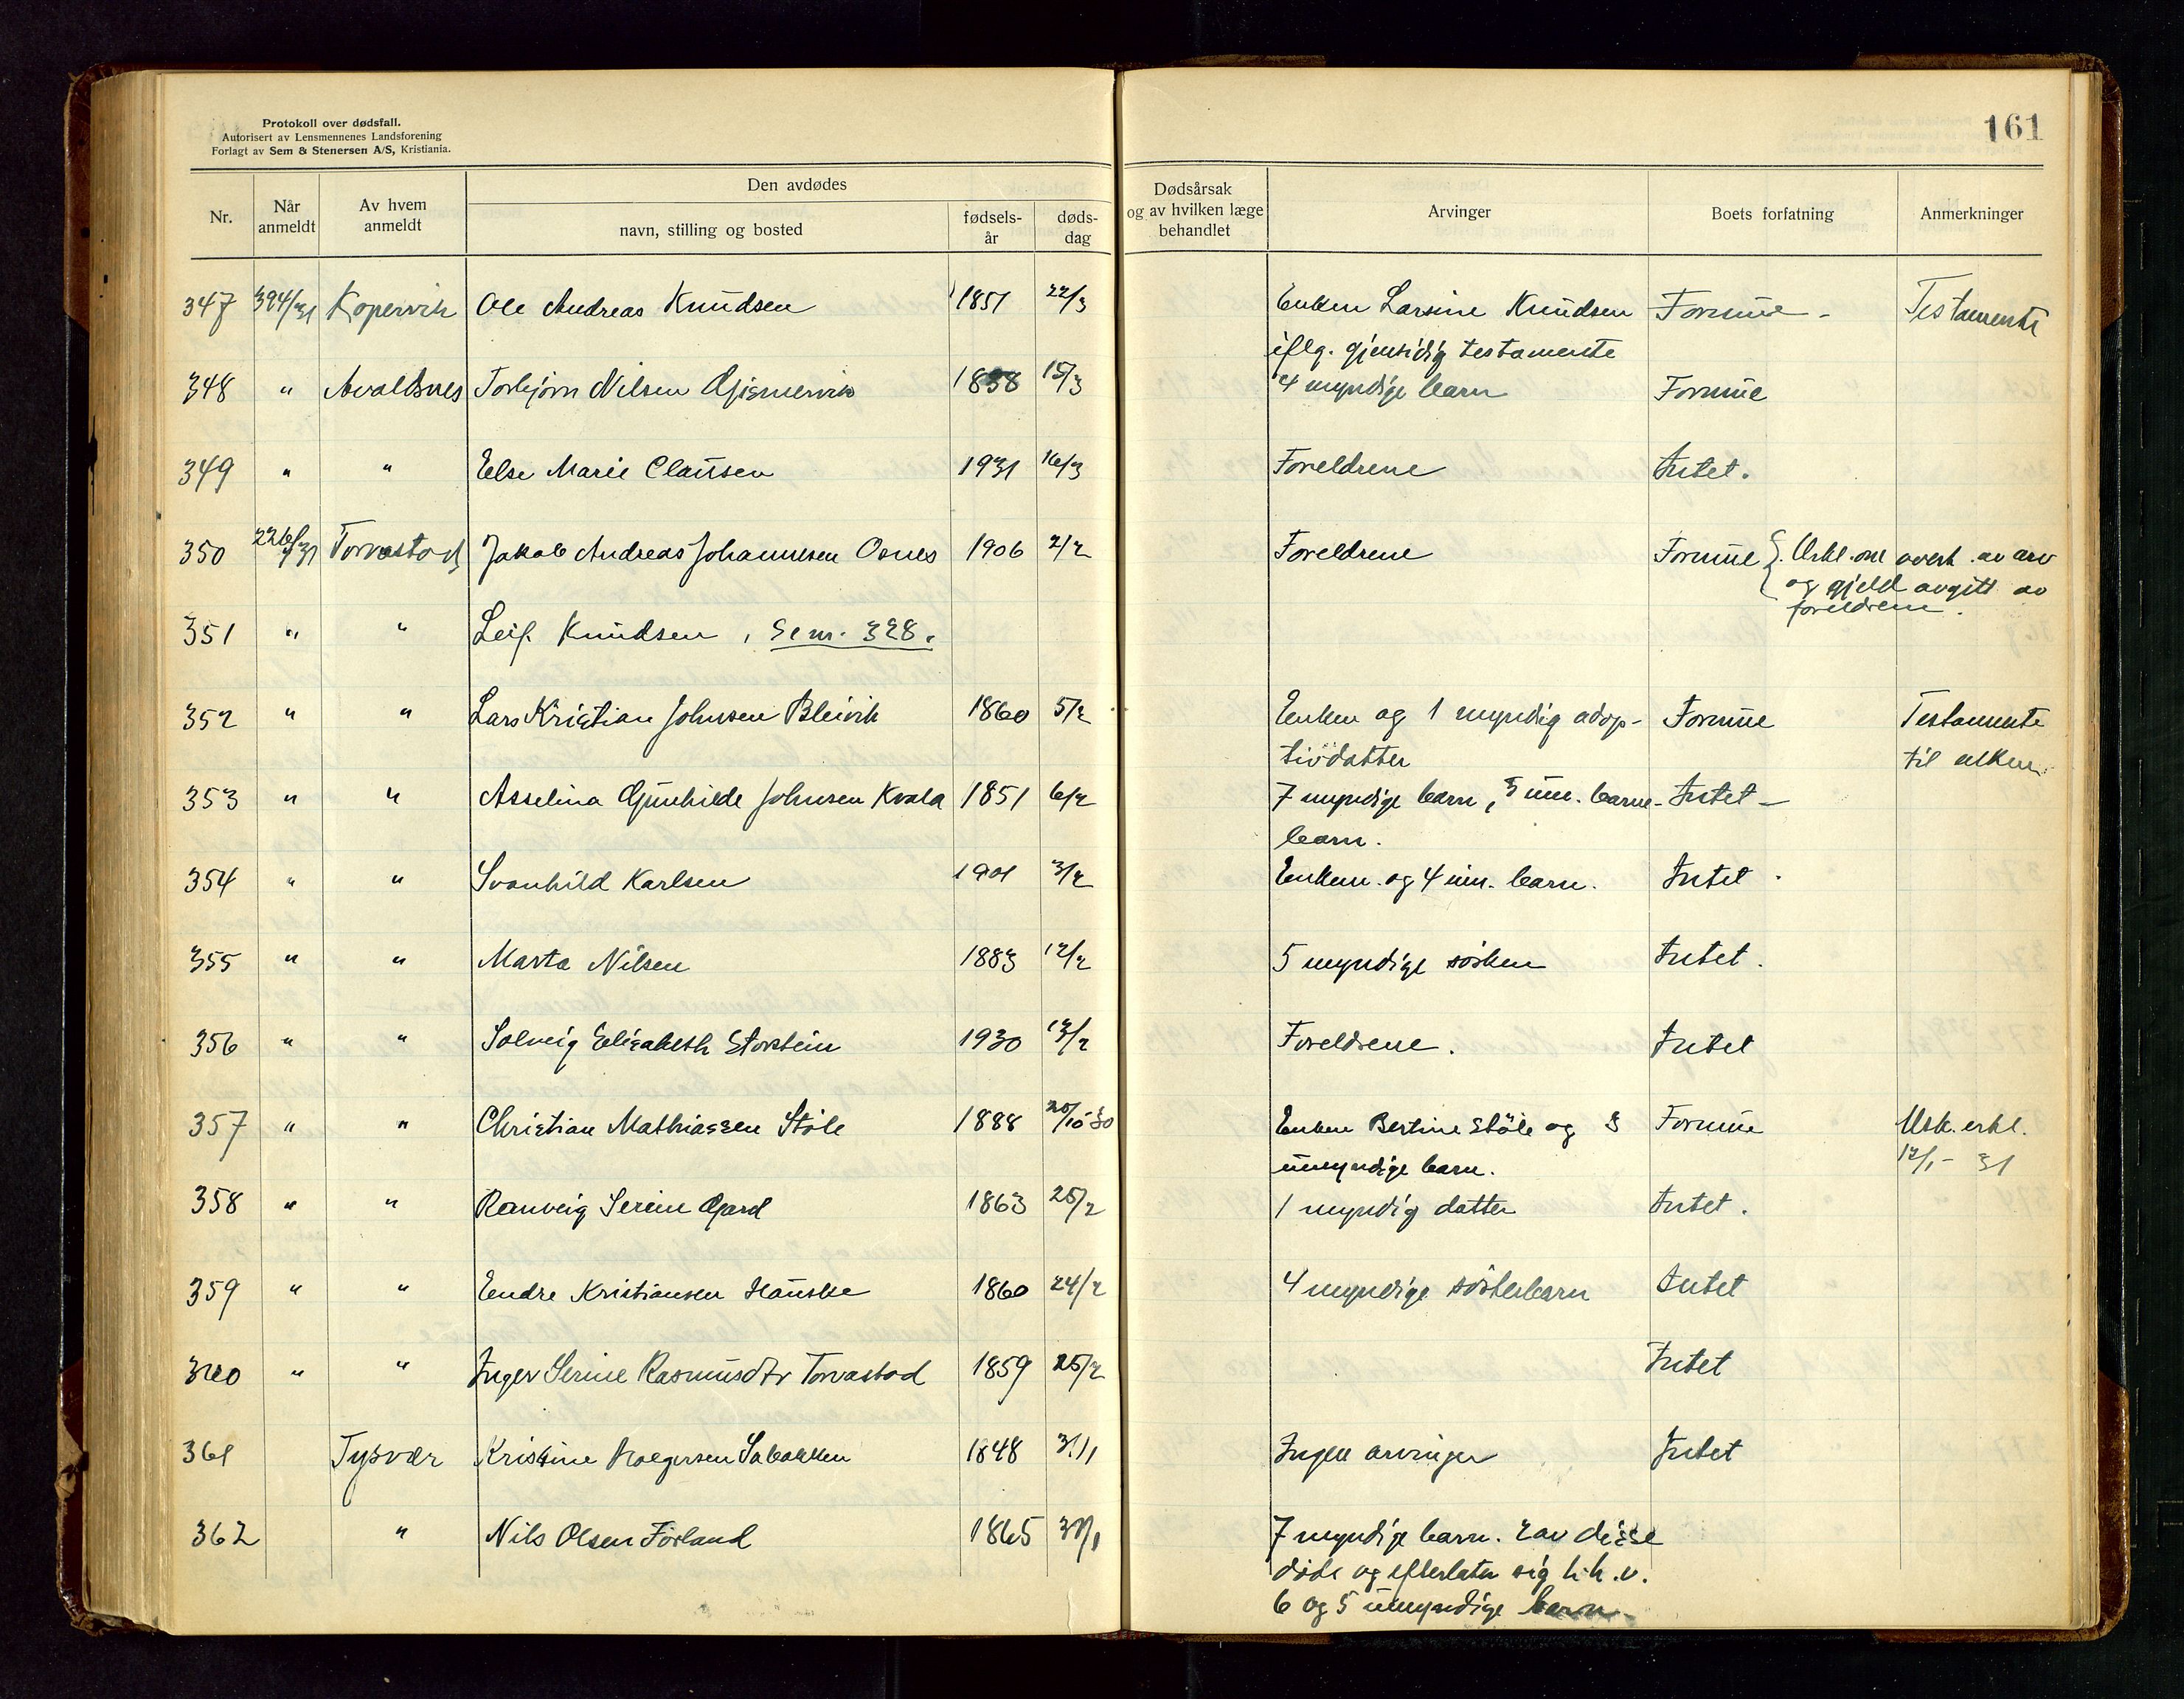 Protokoll over dødsfall.
Autorisert av Lensmennenes Landsforening
Forlagt av Sem & Stenersen A/S, Kristiania.
161
Nr.
Når anmeldt
Av hvem anmeldt
Den avdødes
navn, stilling og bosted
fødsels-år
døds-dag
Dødsårsak og av hvilken læge behandlet
Arvinger
Boets forfatning
Anmerkninger
347 Kopervik Ole Andreas Knudsen 1851 22/3 Enken Larsine Knudsen Formue - Testamente
iflg. gjensidig testamente
348 " Avaldsnes Torbjørn Nilsen Gismervik 1858 15/3 4 myndige barn Formue
349 " " Else Marie Clausen 1931 16/3 Foreldrene Intet.
350 Torvastad Jakob Andreas Johannesen Osnes 1906 2/2 Foreldrene Formue { Erkl. om overt. av arv
og gjeld avgitt av
foreldrene.
351 " " Leif Knudsen, Se nr. 328.
352 " " Lars Kristian Johnsen Bleivik 1860 5/2 Enken og 1 myndig adop- Formue Testamente
tivdatter til enken.
353 " " Asselina Gunhilde Johnsen Kvala 1851 6/2 7 myndige barn, 3 um. barne- Intet -
barn.
354 " " Svanhild Karlsen 1901 3/2 Enkem. og 4 um. barn. Intet.
355 " " Marta Nilsen 1883 12/2 5 myndige søsken Intet.
356 " " Solveig Elisabeth Storstein 1930 13/2 Foreldrene. Intet
357 " " Christian Mathiassen Støle 1888 20/10-30 Enken Bertine Støle og 3 Formue Usk. erkl.
umyndige barn. 12/1 - 31
358 " " Ranveig Serine Gard 1863 25/2 1 myndig datter Intet.
359 " " Endre Kristiansen Hauske 1860 24/2 4 myndige søsterbarn Intet
360 " " Inger Serine Rasmusdtr Torvastad 1859 25/2 Intet
361 Tysvær Kristine 1848 31/1 Ingen arvinger Intet
362 " Nils Olsen Førland 1865 31/1 7 myndige barn. 2 av disse
døde og efterlater sig h.h.v.
6 og 5 umyndige barn.